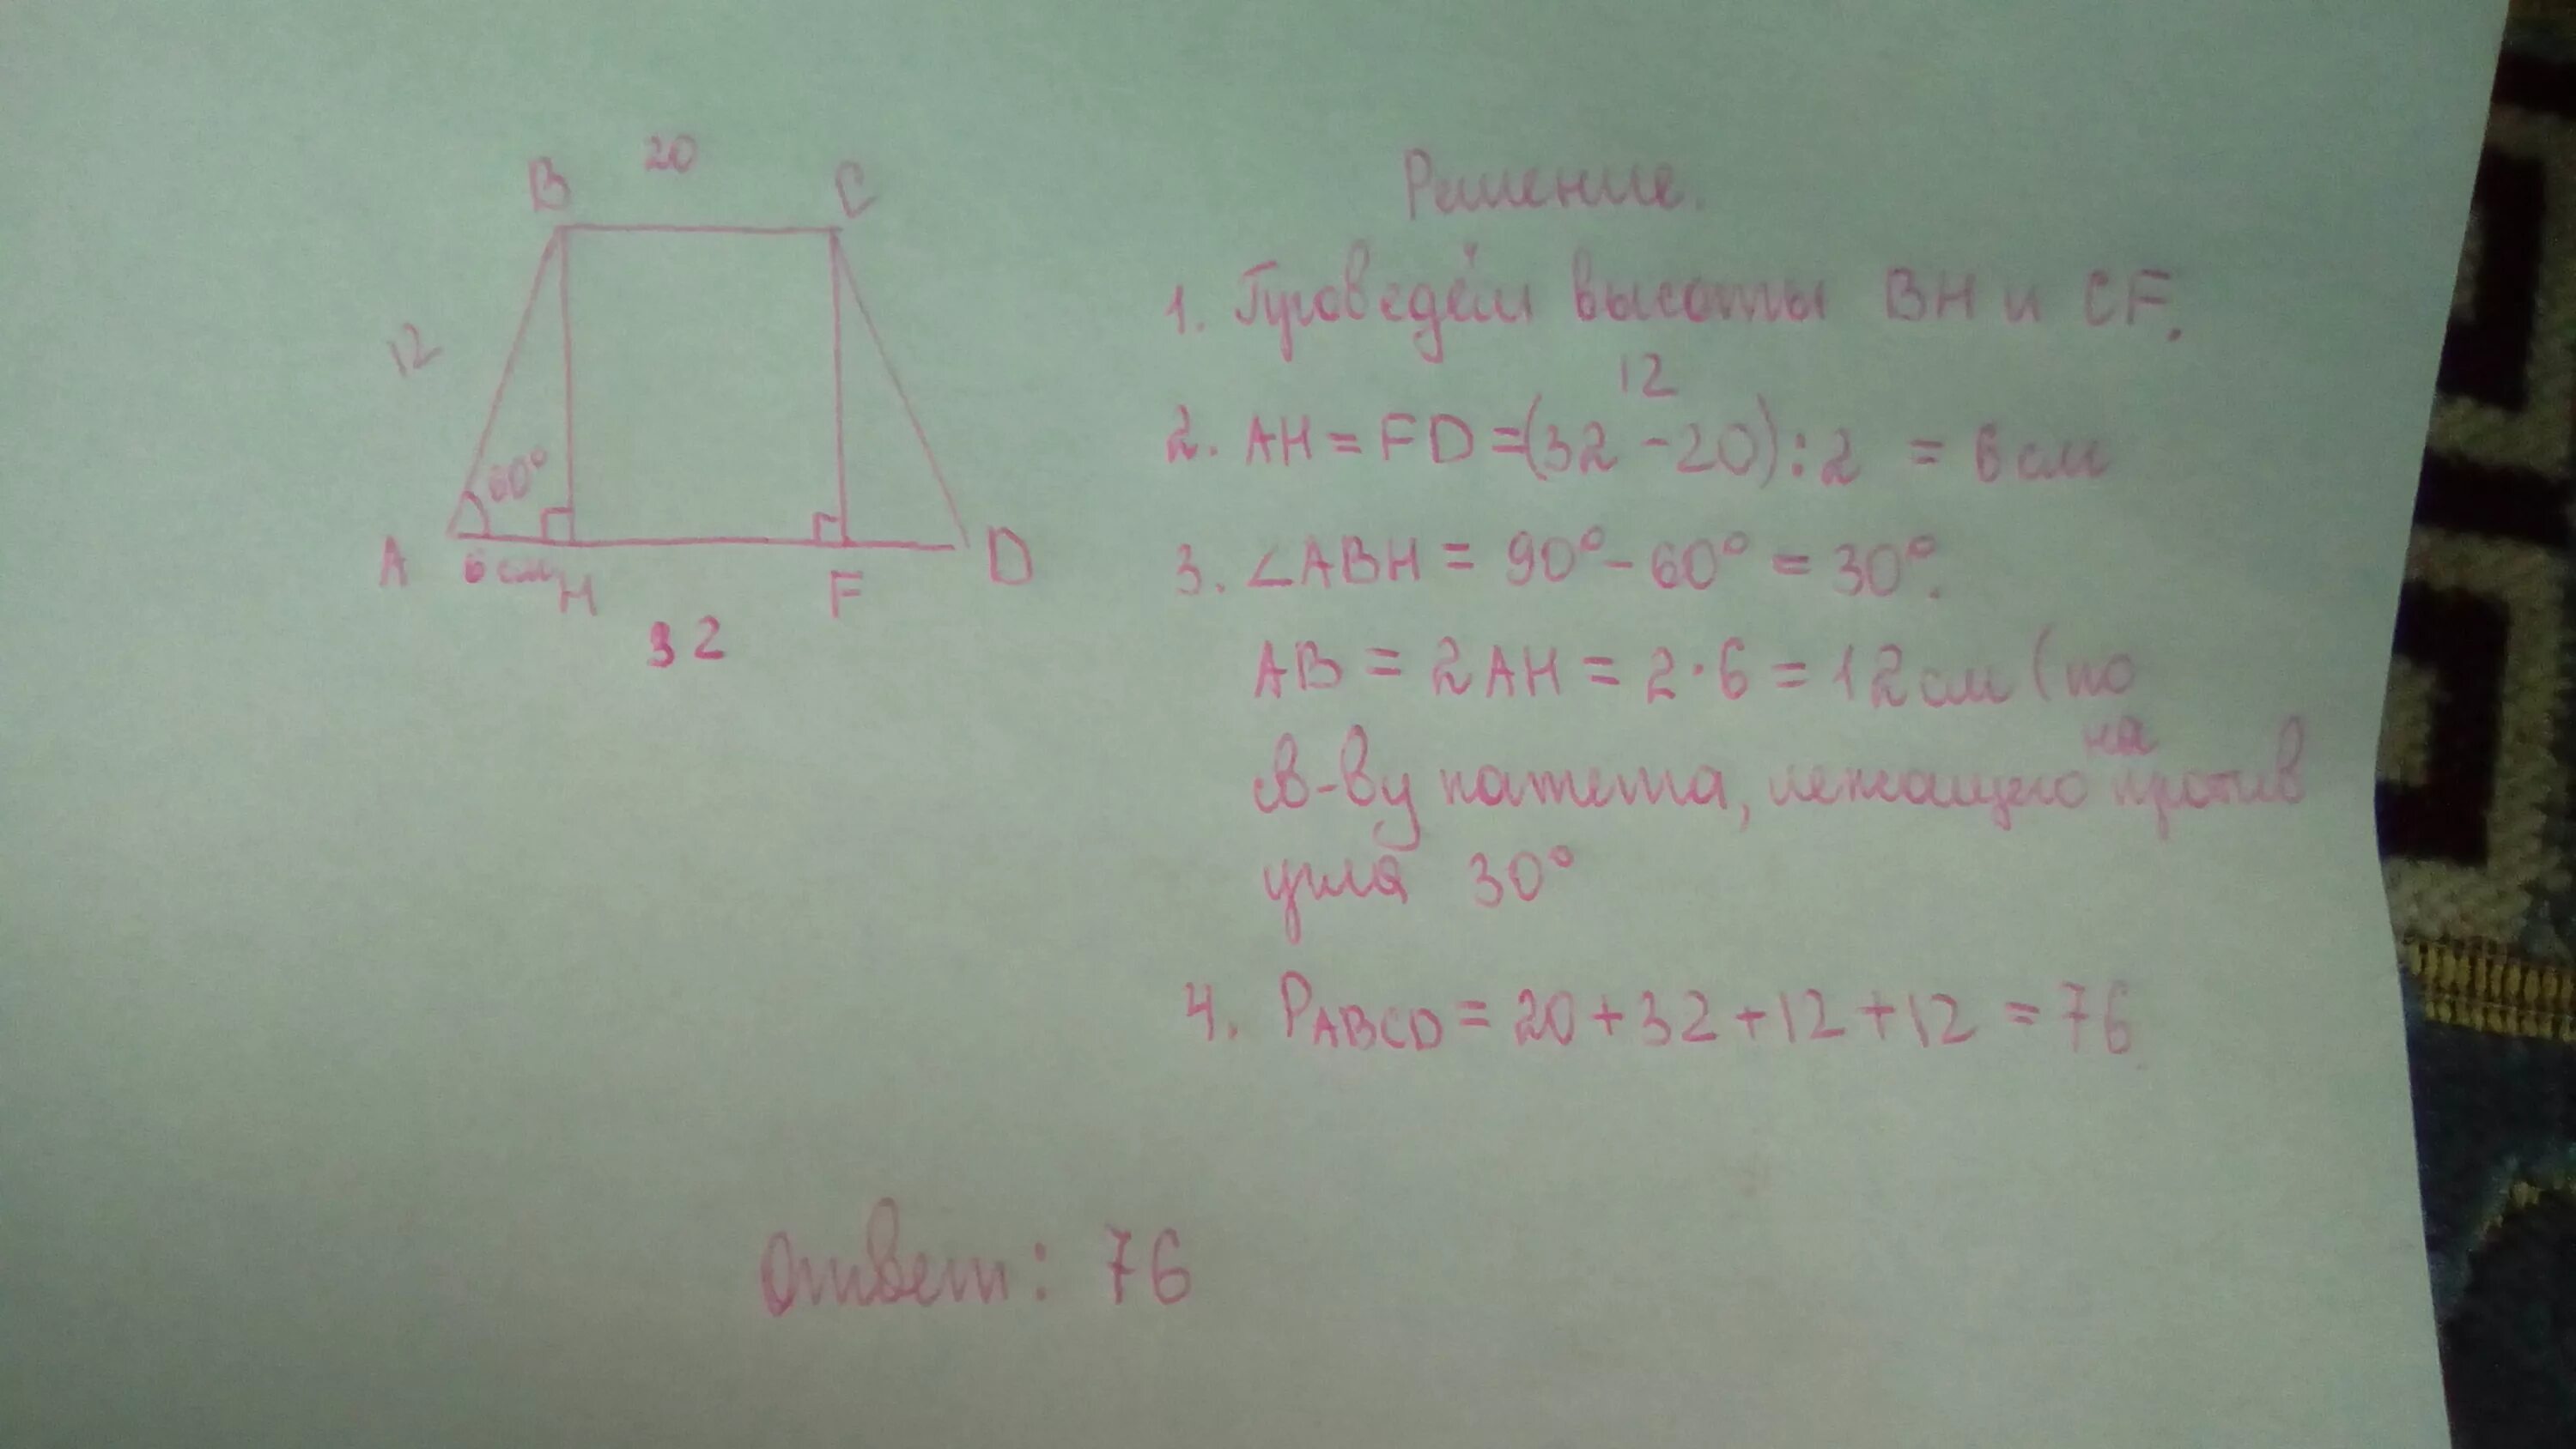 B 20 C
12
60°
A 6 см H F D
32
Решение.
1. Проведём высоты BH и CF.
12
2. AH = FD = (32 - 20) : 2 = 6 см
3. ∠ABH = 90° - 60° = 30°.
AB = 2AH = 2 · 6 = 12 см (по
св-ву катета, лежащего на против
угла 30°
4. PABCD = 20 + 32 + 12 + 12 = 76
Ответ: 76